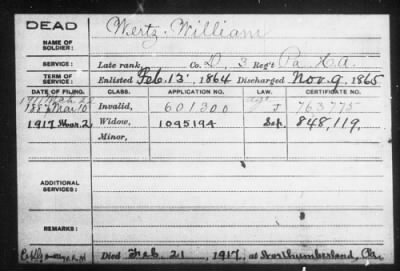 DEAD
NAME OF SOLDIER: Wertz. William
SERVICE: Late rank, Co. D, 3 Reg't Pa. H.A.
TERM OF SERVICE: Enlisted Feb. 13, 1864 Discharged Nov. 9, 1865
DATE OF FILING. CLASS. APPLICATION NO. LAW. CERTIFICATE NO.
Invalid, 601300 J 763775
1917 Mar. 2 Widow, 1095194 Sep. 848,119.
Minor,
ADDITIONAL SERVICES:
REMARKS:
Died Feb. 21, 1917, at Northumberland, Pa.